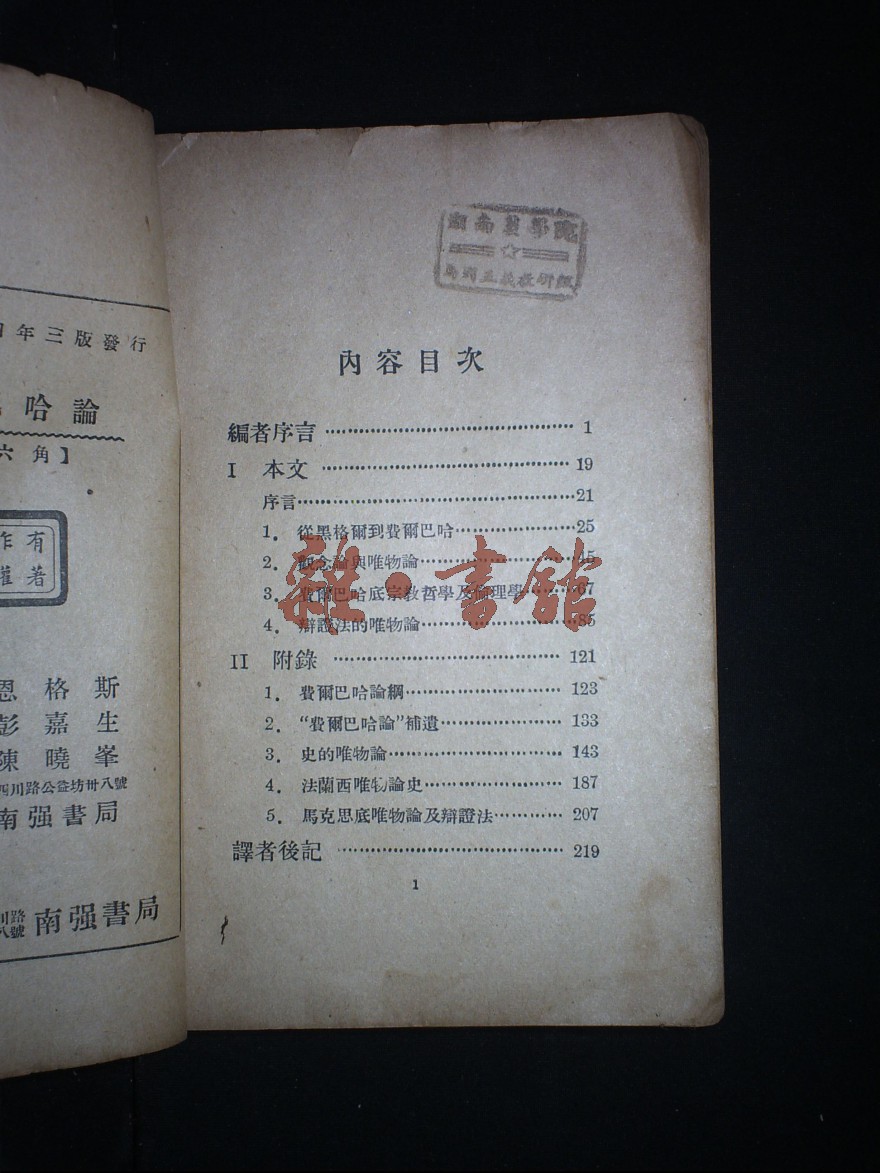 年三版發行
哈論
六角】
有
著
作
權
恩格斯
彭嘉生
陳曉峯
四川路公益坊卅八號
南强書局
川路
八號 南强書局
學院
內容目次
編者序言 1
I 本文 19
序言 21
1. 從黑格爾到費爾巴哈 25
2. 觀念論與唯物論 45
3. 費爾巴哈底宗教哲學及倫理學 67
4. 辯證法的唯物論 85
II 附錄 121
1. 費爾巴哈論綱 123
2. “費爾巴哈論”補遺 133
3. 史的唯物論 143
4. 法蘭西唯物論史 187
5. 馬克思底唯物論及辯證法 207
譯者後記 219
1
雜·書館